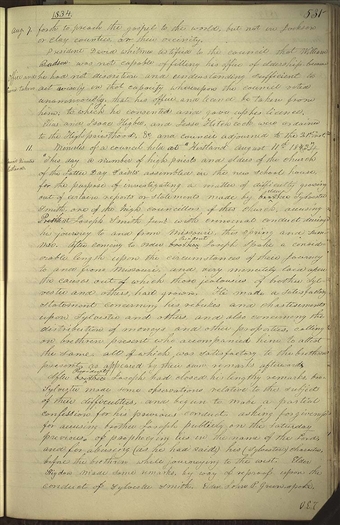 1834.
531
Aug. 7 forth to preach the gospel to the world, but not in Jackson
or Clay counties or their vicinity.
President David Whitmer testified to the council that William
was not capable of filling his office of eldership because
he had not discretion and understanding sufficient to
act wisely in that capacity whereupon the council voted
unanimously that his office and license be taken from
him, to which he consented and gave up his license,
to the High priesthood, &c and council adjourned to the 21st inst.
11. Minutes of a council held at Kirtland August 11th 1834
This day a number of high priests and elders of the church
of the Latter Day Saints assembled in the new school house
for the purpose of investigating a matter of difficulty growing
out of certain reports or statements made by Sylvester
Smith, one of the high counsellors of this church, accusing
Joseph Smith Jun. with criminal conduct during
his journey to and from Missouri, this spring and sum-
mer. After coming to order Joseph spoke a consid-
erable length upon the circumstances of their journey
to and from Missouri, and very minutely laid open
the causes out of which those jealousies of brother Syl-
vester and others had grown. He made a satisfactory
statement concerning his rebukes and chastisements
upon Sylvester and others, and also concerning the
distribution of moneys and other properties, calling
on brethren present who accompanied him to attest
the same all of which was satisfactory to the brethren
present as appeared by their own remarks afterwards.
After Joseph had closed his lengthy remarks bro.
Sylvester made some observations relative to the subject
of their difficulties, and began to make a partial
confession for his previous conduct asking forgiveness
for accusing brother Joseph publicly, on the Saturday
previous, of prophecying lies in the name of the Lord,
and for abusing (as he had said) his (Sylvester's) character
before the brethren while journeying to the west. Elder
Rigdon made some remarks by way of reproof upon the
conduct of Sylvester Smith. Elder